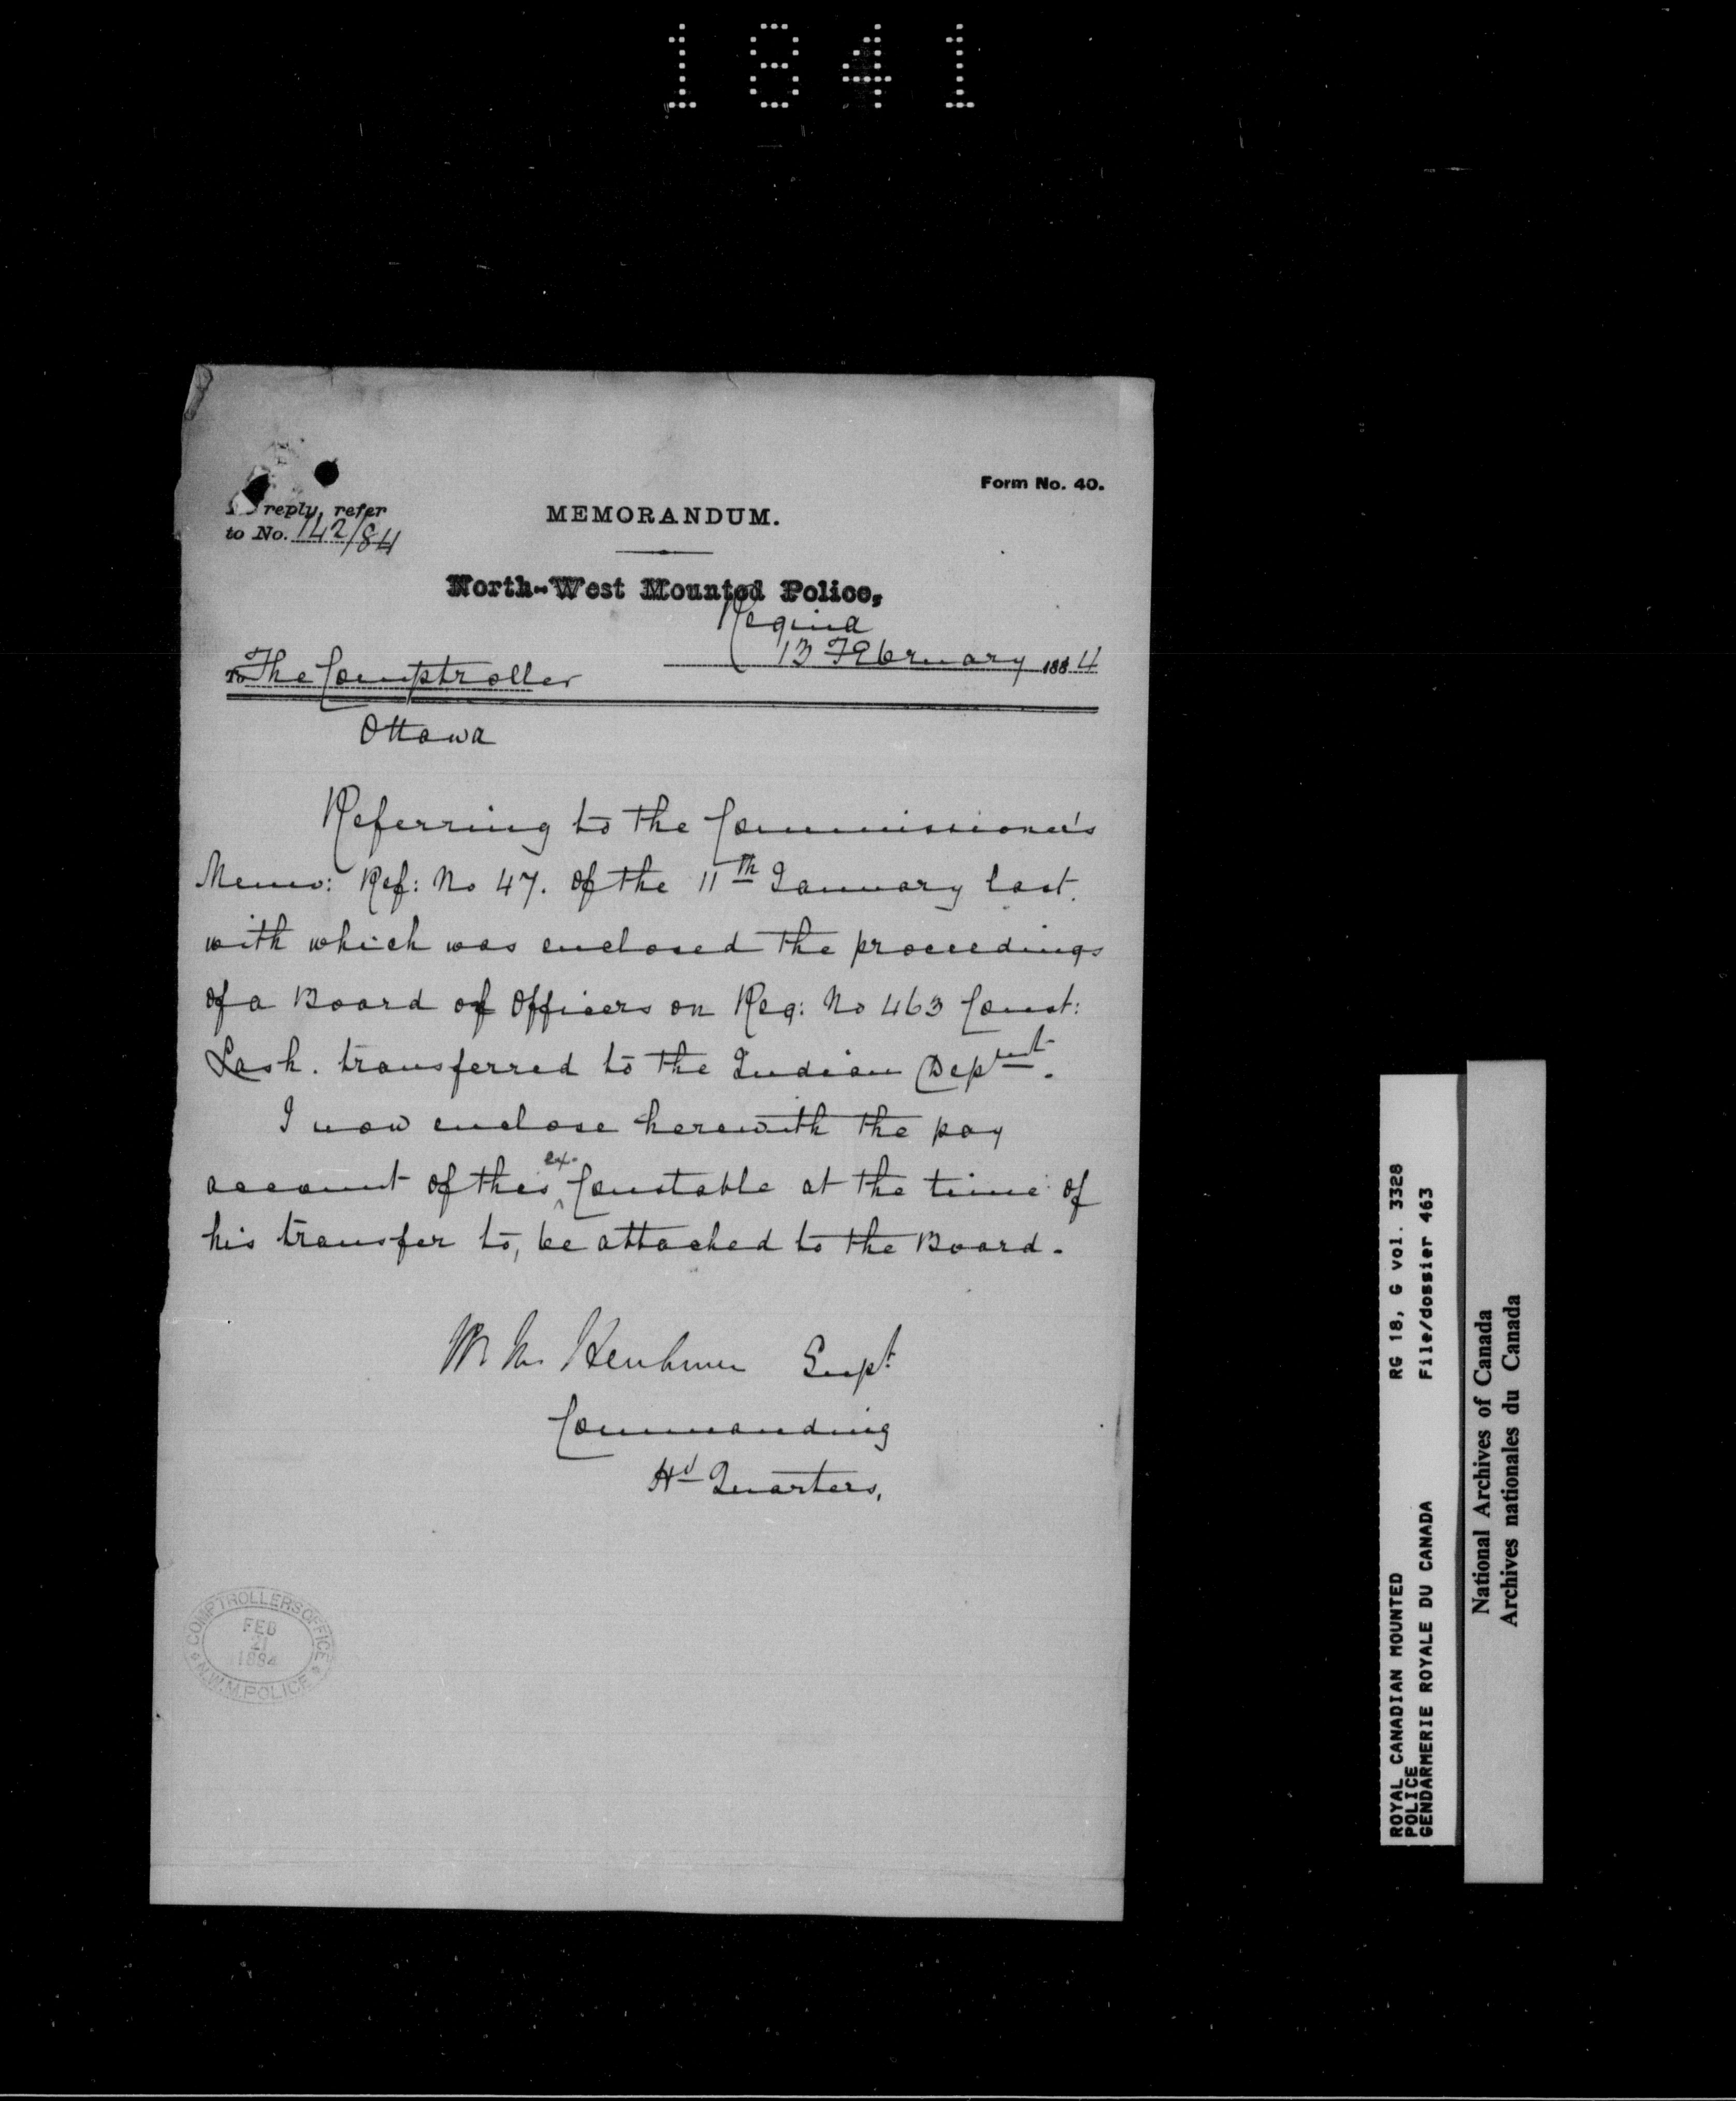 1841
Form No. 40.
reply, refer
to No. 142/84
MEMORANDUM.
North-West Mounted Police,
Regina
13 February 1884
To The Comptroller
Ottawa
Referring to the Commissioner's
Memo: Ref: No 47. of the 11th January last.
with which was enclosed the proceedings
of a Board of Officers on Reg: No 463 Const:
Lash. transferred to the Indian Deptmt.
I now enclose herewith the pay
account of this ex. Constable at the time of
his transfer to, be attached to the Board.
Supt
Commanding
Hd Quarters,
COMPTROLLERS OFFICE
FEB
21
1884
N.W.M. POLICE
ROYAL CANADIAN MOUNTED
POLICE
GENDARMERIE ROYALE DU CANADA
RG 18, G vol. 3328
File/dossier 463
National Archives of Canada
Archives nationales du Canada